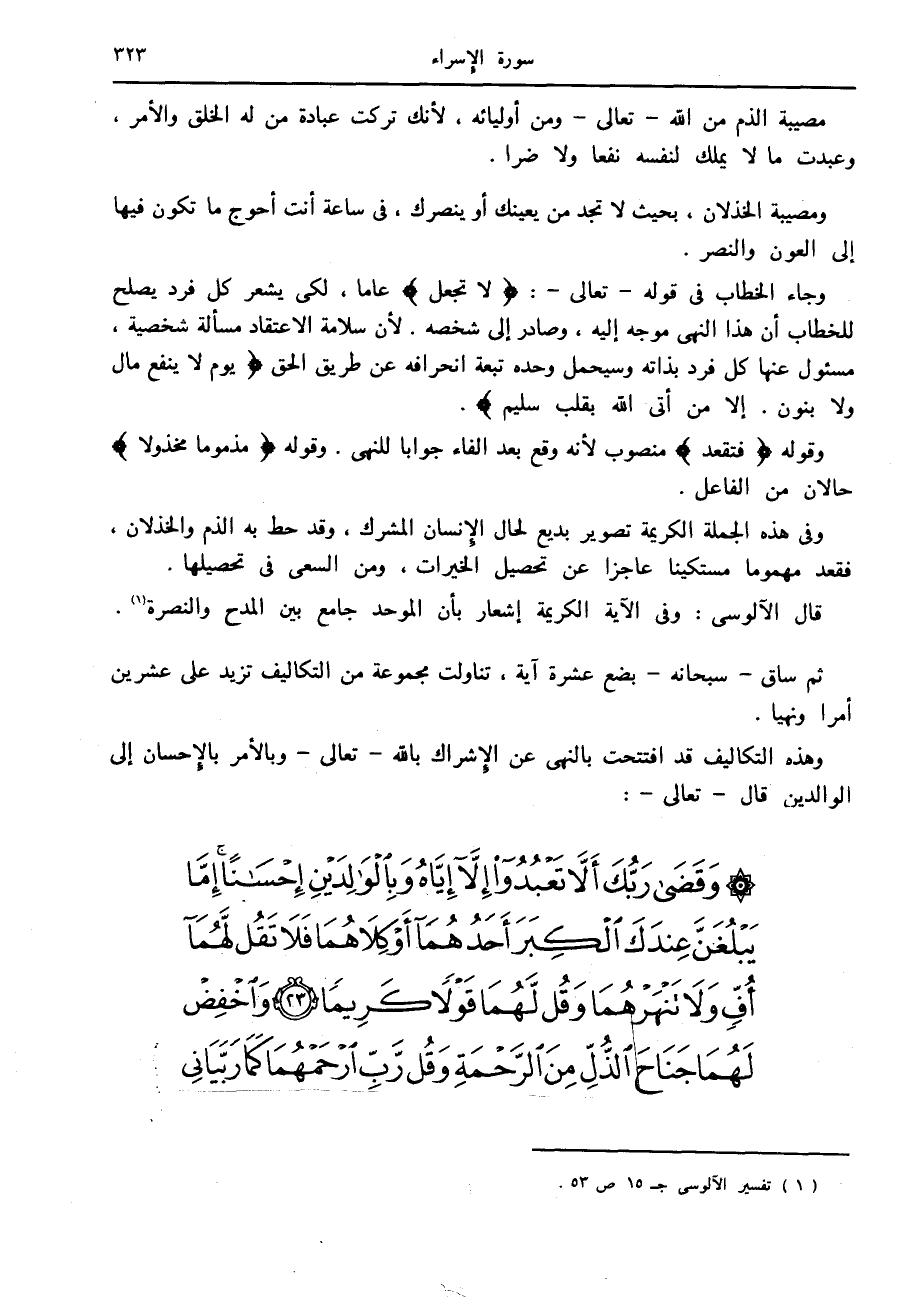 سورة الإسراء ٣٢٣
مصيبة الذم من الله - تعالى - ومن أوليائه ، لأنك تركت عبادة من له الخلق والأمر ،
وعبدت ما لا يملك لنفسه نفعا ولا ضرا .
ومصيبة الخذلان ، بحيث لا تجد من يعينك أو ينصرك ، فى ساعة أنت أحوج ما تكون فيها
إلى العون والنصر .
وجاء الخطاب فى قوله - تعالى - : ﴿ لا تجعل ﴾ عاما ، لكى يشعر كل فرد يصلح
للخطاب أن هذا النهى موجه إليه ، وصادر إلى شخصه . لأن سلامة الاعتقاد مسألة شخصية ،
مسئول عنها كل فرد بذاته وسيحمل وحده تبعة انحرافه عن طريق الحق ﴿ يوم لا ينفع مال
ولا بنون . إلا من أتى الله بقلب سليم ﴾ .
وقوله ﴿ فتقعد ﴾ منصوب لأنه وقع بعد الفاء جوابا للنهى . وقوله ﴿ مذموما مخذولا ﴾
حالان من الفاعل .
وفى هذه الجملة الكريمة تصوير بديع لحال الإنسان المشرك ، وقد حط به الذم والخذلان ،
فقعد مهموما مستكينا عاجزا عن تحصيل الخيرات ، ومن السعى فى تحصيلها .
قال الآلوسى : وفى الآية الكريمة إشعار بأن الموحد جامع بين المدح والنصرة(١) .
ثم ساق - سبحانه - بضع عشرة آية ، تناولت مجموعة من التكاليف تزيد على عشرين
أمرا ونهيا .
وهذه التكاليف قد افتتحت بالنهى عن الإشراك بالله - تعالى - وبالأمر بالإحسان إلى
الوالدين قال - تعالى - :
۞ وَقَضَىٰ رَبُّكَ أَلَّا تَعْبُدُوٓا۟ إِلَّآ إِيَّاهُ وَبِٱلْوَٰلِدَيْنِ إِحْسَـٰنًا ۚ إِمَّا
يَبْلُغَنَّ عِندَكَ ٱلْكِبَرَ أَحَدُهُمَآ أَوْ كِلَاهُمَا فَلَا تَقُل لَّهُمَآ
أُفٍّ وَلَا تَنْهَرْهُمَا وَقُل لَّهُمَا قَوْلًا كَرِيمًا ٢٣ وَٱخْفِضْ
لَهُمَا جَنَاحَ ٱلذُّلِّ مِنَ ٱلرَّحْمَةِ وَقُل رَّبِّ ٱرْحَمْهُمَا كَمَا رَبَّيَانِى
( ١ ) تفسير الآلوسى جـ ١٥ ص ٥٣ .